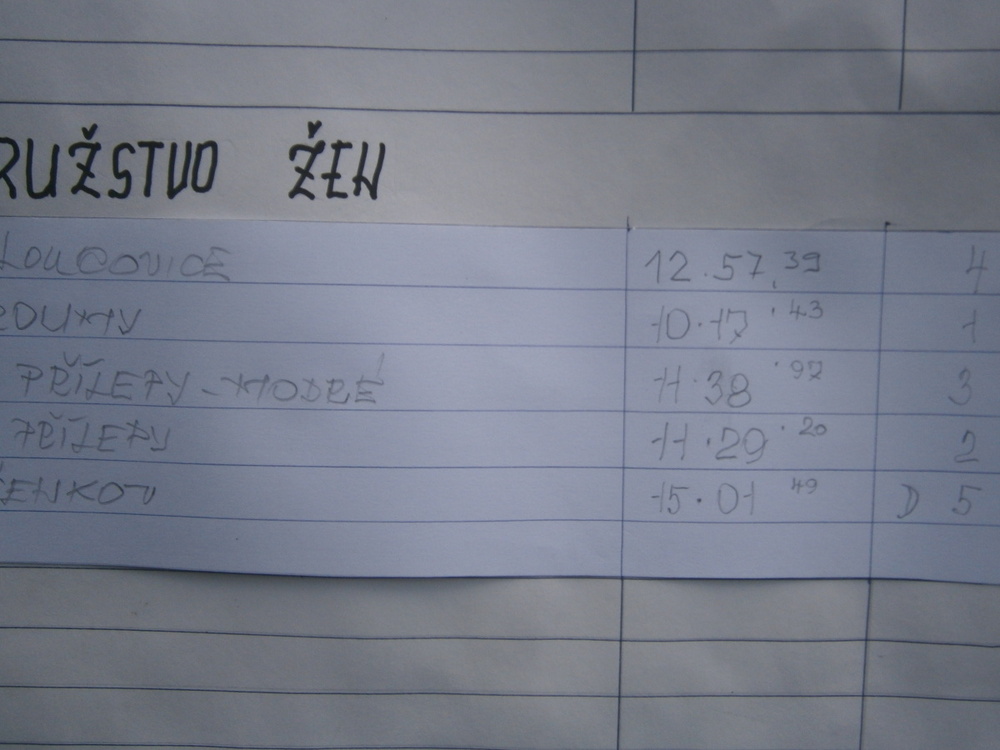 RUŽSTVO ŽEN
LOUČOVICE 12.57,39 4
10.17.43 1
PŘÍLEPY - MODRÉ 11.38.97 3
PŘÍLEPY 11.29.20 2
ŽENKOV 15.01 49 D 5